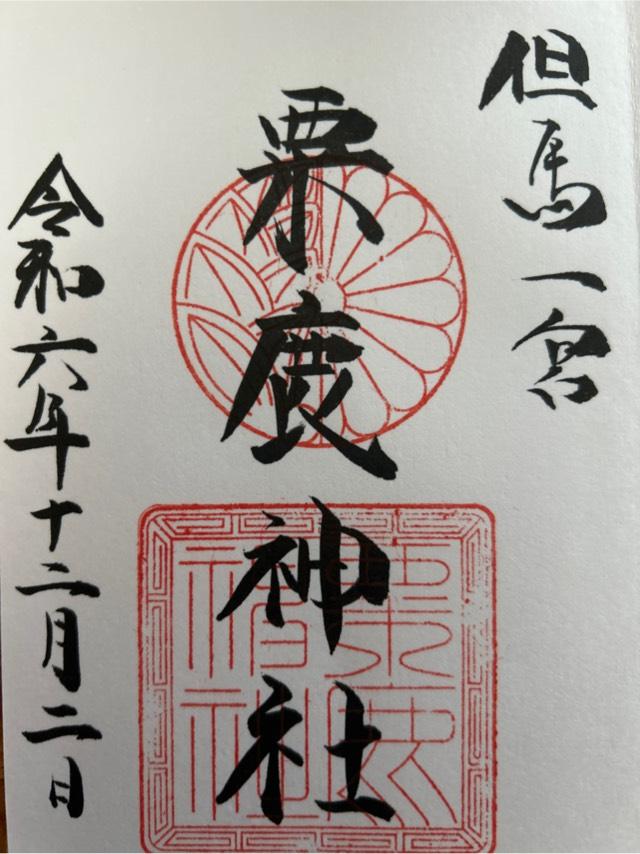 但馬一宮
粟鹿神社
令和六年十二月二日